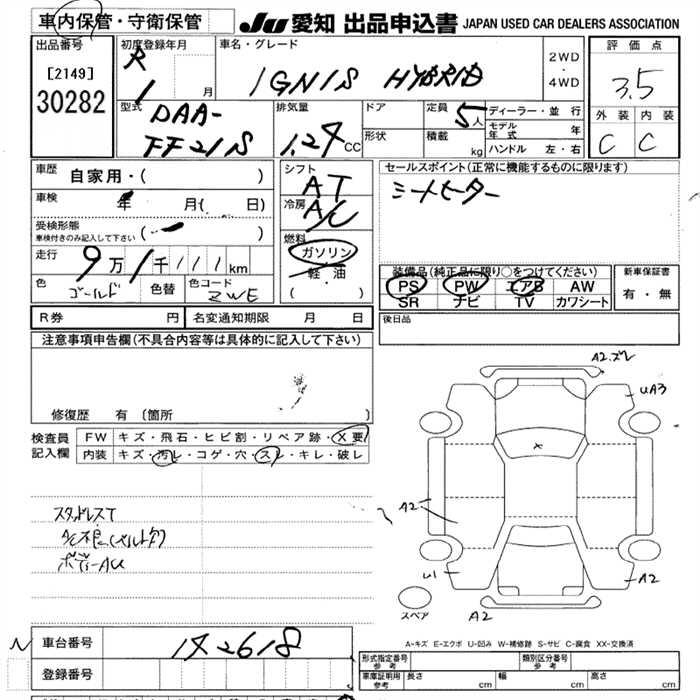 車内保管・守衛保管
JU 愛知 出品申込書 JAPAN USED CAR DEALERS ASSOCIATION
出品番号
[2149]
30282
初度登録年月
R
1 月
車名・グレード
IGNIS HYBRID
2WD
・
4WD
評価点
3.5
外装 内装
C C
型式
DAA-
FF21S
排気量
1.24 CC
ドア
形状
定員
5人
積載 kg
ディーラー・並行
モデル年式 年
ハンドル 左・右
車歴
自家用・( )
車検
年 月( 日)
受検形態
車検付きのみ記入して下さい
走行
9万1千111km
色
ゴールド
色替
色コード
ZWE
シフト
AT
冷房
A/C
燃料
ガソリン
軽・油
( )
セールスポイント(正常に機能するものに限ります)
シートヒーター
装備品(純正品に限り○をつけてください)
PS PW エアB AW
SR ナビ TV カワシート
新車保証書
有・無
R券 円
名変通知期限 月 日
後日品
注意事項申告欄(不具合内容等は具体的に記入して下さい)
修復歴 有(箇所 )
検査員
記入欄
FW キズ・飛石・ヒビ割・リペア跡・X要
内装 キズ・汚レ・コゲ・穴・スレ・キレ・破レ
スタッドレスT
A/C不良(ベルト切)
ボディーAU
A2.ズレ
UA3
X
A2
U1
A2
A2
スペア
A-キズ E-エクボ U-凹み W-補修跡 S-サビ C-腐食 XX-交換済
N
車台番号
172618
登録番号
形式指定番号
参考
類別区分番号
参考
車庫証明用
参考
長さ cm
幅 cm
高さ cm